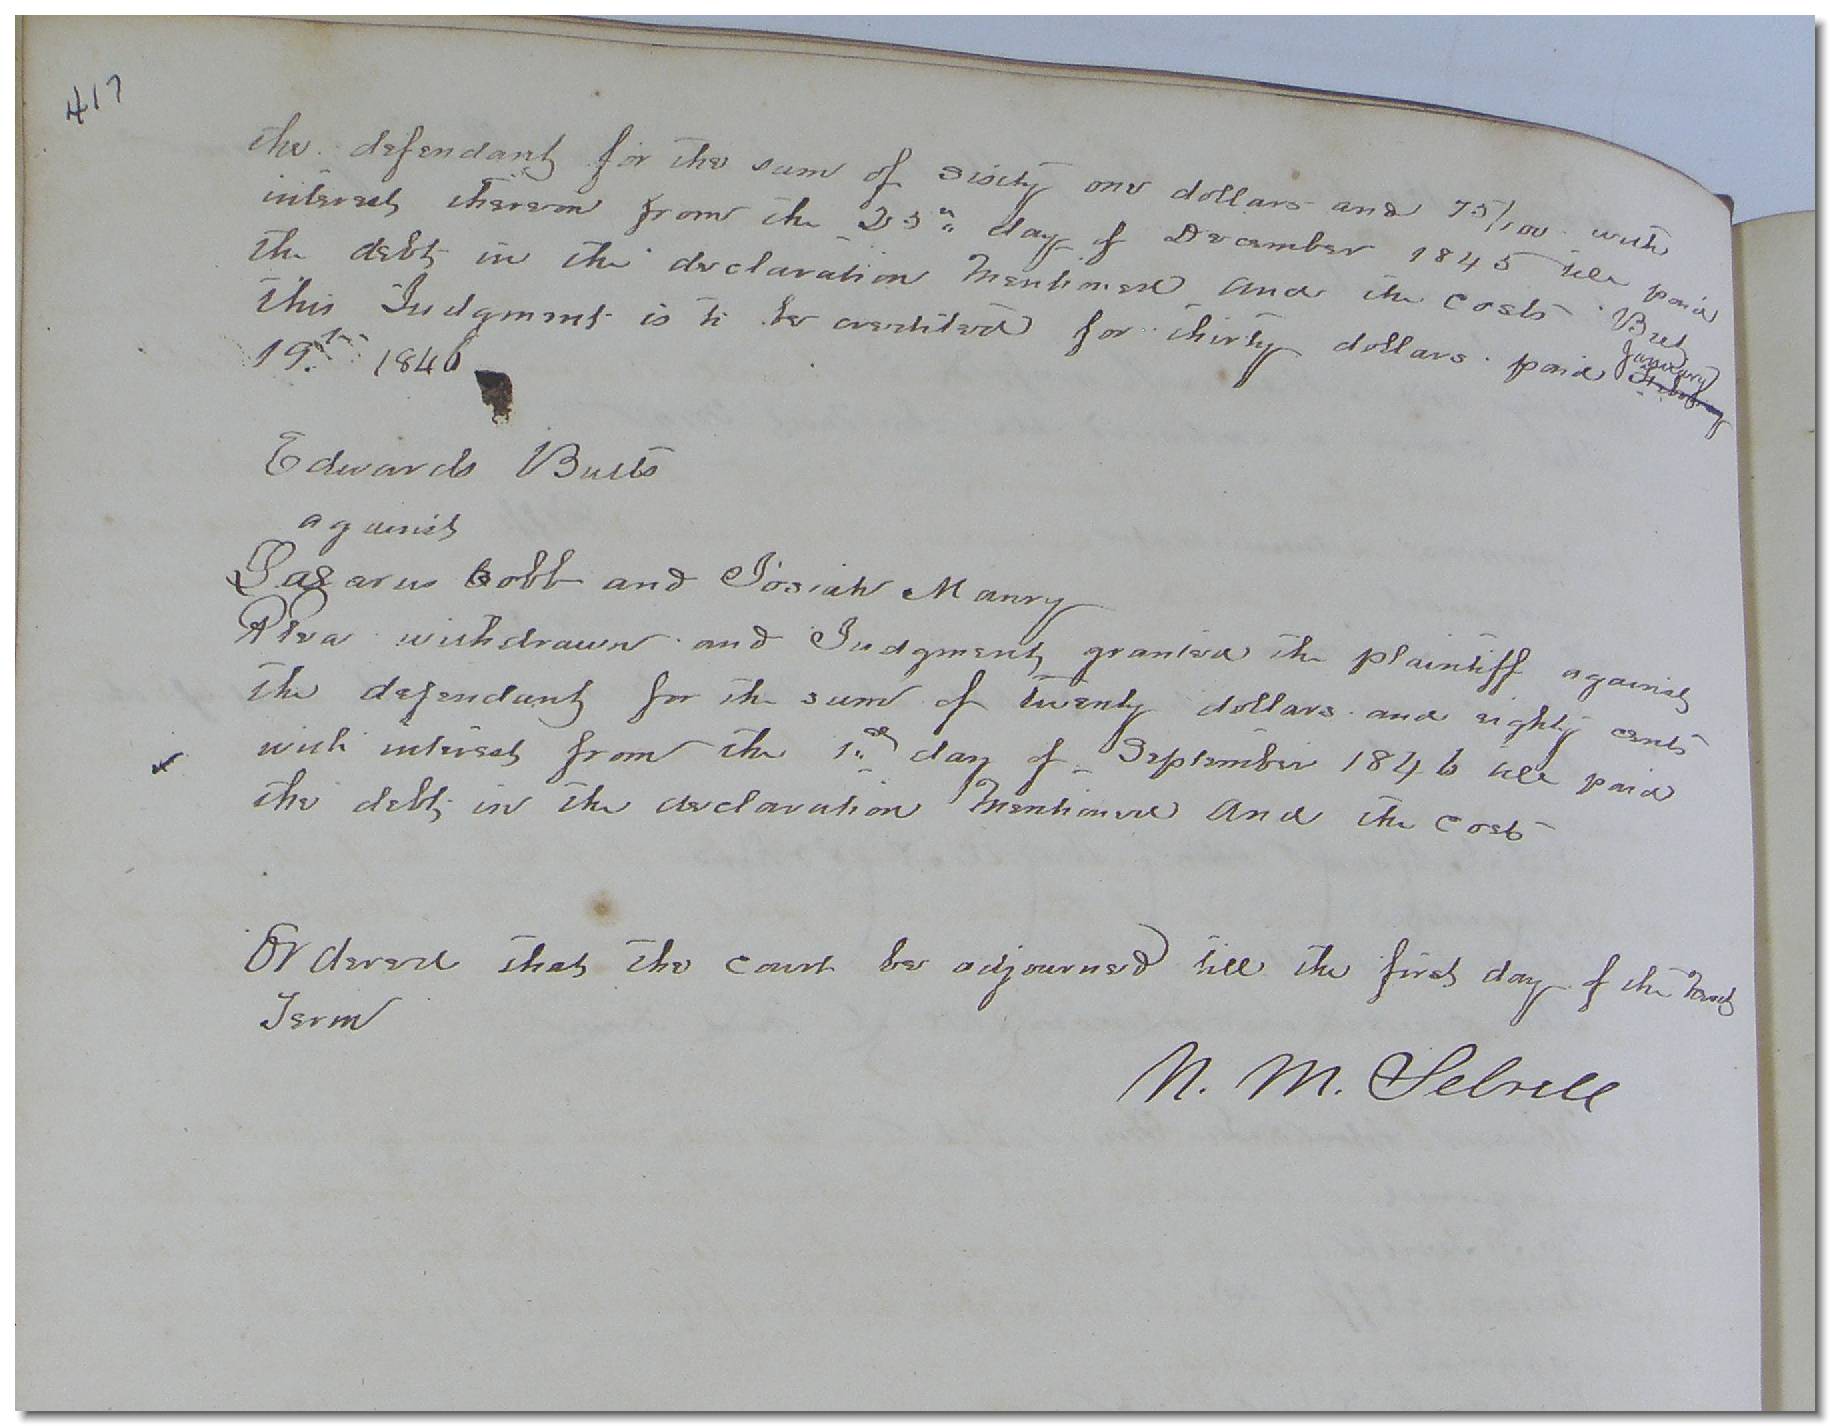 417
the defendant for the sum of sixty one dollars and 75/100 with
interest thereon from the 25th day of December 1845 till paid
the debt in the declaration mentioned and the costs. But
this Judgment is to be credited for thirty dollars paid January
19th 1846
Edwards Butts
against
Lazarus Cobb and Josiah Manry
Plea withdrawn and Judgment granted the plaintiff against
the defendant for the sum of twenty dollars and eighty cents
with interest from the 1st day of September 1846 till paid
the debt in the declaration mentioned and the costs
Ordered that the court be adjourned till the first day of the Next
Term
N. M. Sebrell